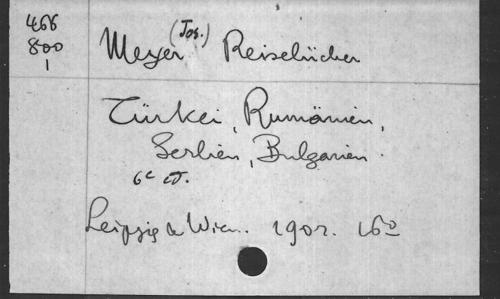 466
800
1
Meyer (Jos.) Reisebücher
Türkei, Rumänien,
Serbien, Bulgarien.
6e éd.
Leipzig & Wien. 1902. 16o